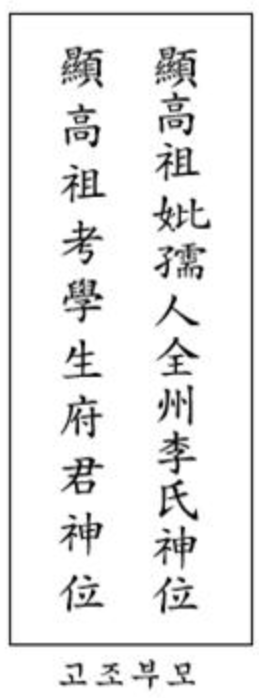 顯高祖考學生府君神位
顯高祖妣孺人全州李氏神位
고조부모